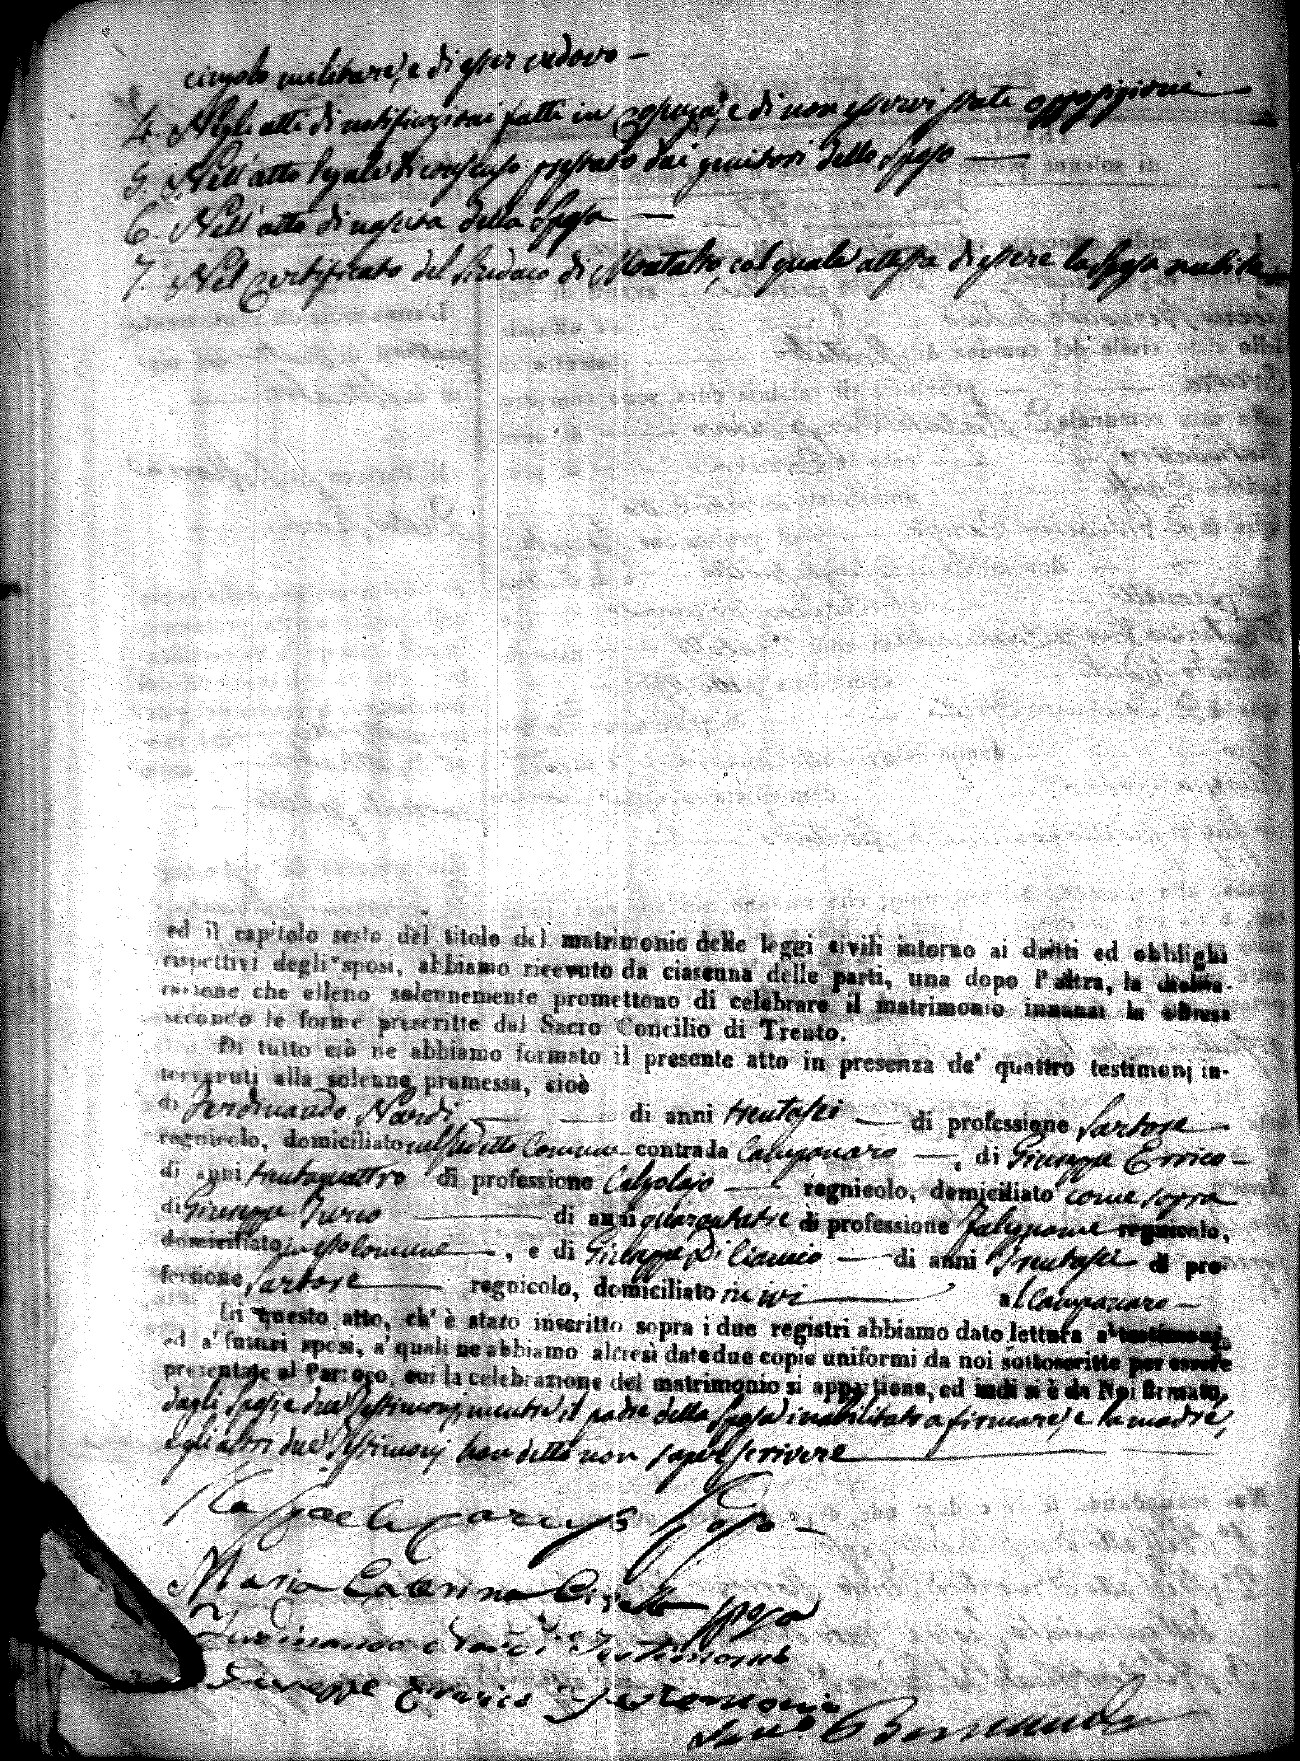 cingolo militare, e di esser vedovo —
4. Negli atti di notificazioni fatti in Cosenza, e di non esservi state opposizioni —
5. Nell'atto legale di consenso prestato dai genitori dello Sposo —
6. Nell'atto di nascita della Sposa —
7. Nel Certificato del Sindaco di Montalto, col quale attesta di essere la Sposa nubile —
ed il capitolo sesto del titolo del matrimonio delle leggi civili intorno ai diritti ed obblighi
rispettivi degli sposi, abbiamo ricevuto da ciascuna delle parti, una dopo l'altra, la dichia-
razione che elleno solennemente promettono di celebrare il matrimonio innanzi la chiesa
secondo le forme prescritte dal Sacro Concilio di Trento.
Di tutto ciò ne abbiamo formato il presente atto in presenza de' quattro testimonj in-
tervenuti alla solenne promessa, cioè
di Ferdinando Nardi — di anni trentasei — di professione Sartore —
regnicolo, domiciliato nel suddetto Comune contrada Campanaro —, di Giuseppe Errico —
di anni trentaquattro di professione Calzolajo — regnicolo, domiciliato come sopra
di Giuseppe — di anni quarantatre di professione Falegname regnicolo,
domiciliato in esso Comune —, e di Giuseppe Di — di anni Trentasei di pro-
fessione Sartore — regnicolo, domiciliato in ivi — al Campanaro —
Di questo atto, ch' è stato inscritto sopra i due registri abbiamo dato lettura a' testimonj,
ed a' futuri sposi, a' quali ne abbiamo altresì date due copie uniformi da noi sottoscritte per essere
presentate al Parroco, cui la celebrazione del matrimonio si appartiene, ed indi si è da Noi firmato,
dagli Sposi, e due Testimonj, mentre il padre della Sposa inabilitato a firmare, e la madre,
e gli altri due Testimonj han detto non saper scrivere —
Raffaele Sposo —
Maria Caterina sposa
Ferdinando Nardi Testimone
Giuseppe Errico Testemonio